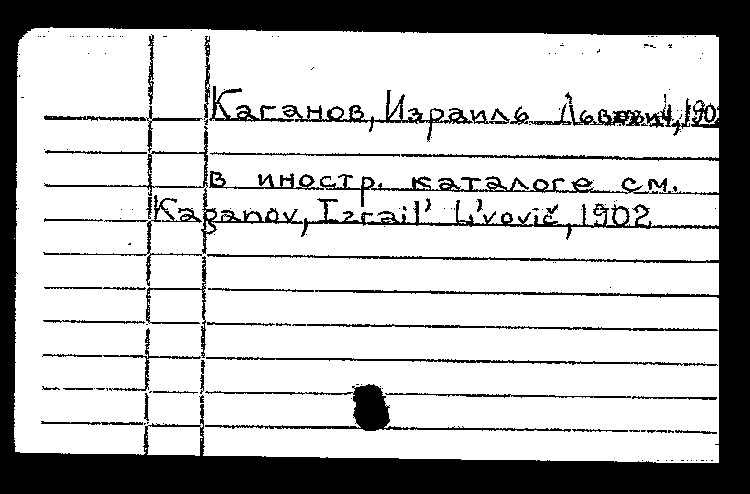 Каганов, Израиль Львович, 1902
в иностр. каталоге см.
Kaganov, Izrail' L'vovič, 1902